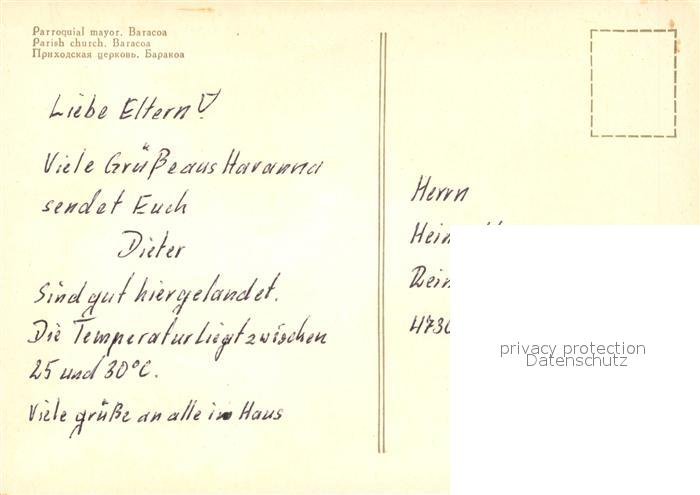 Parroquial mayor. Baracoa
Parish church. Baracoa
Приходская церковь. Баракоа
Liebe Eltern!
Viele Grüße aus Havanna
sendet Euch
Dieter
Sind gut hier gelandet.
Die Temperatur liegt zwischen
25 und 30°C.
Viele grüße an alle im Haus
Herrn
privacy protection
Datenschutz